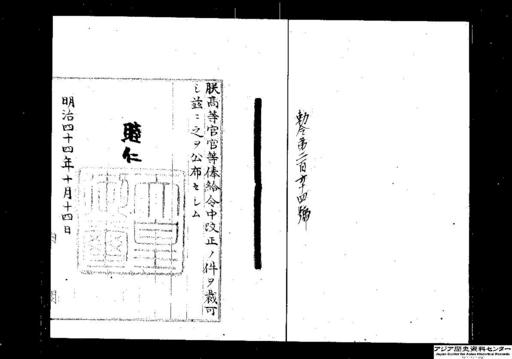 勅令第二百五十四號
朕高等官官等俸給令中改正ノ件ヲ裁可
シ茲ニ之ヲ公布セシム
睦仁
明治四十四年十月十四日
アジア歴史資料センター
Japan Center for Asian Historical Records